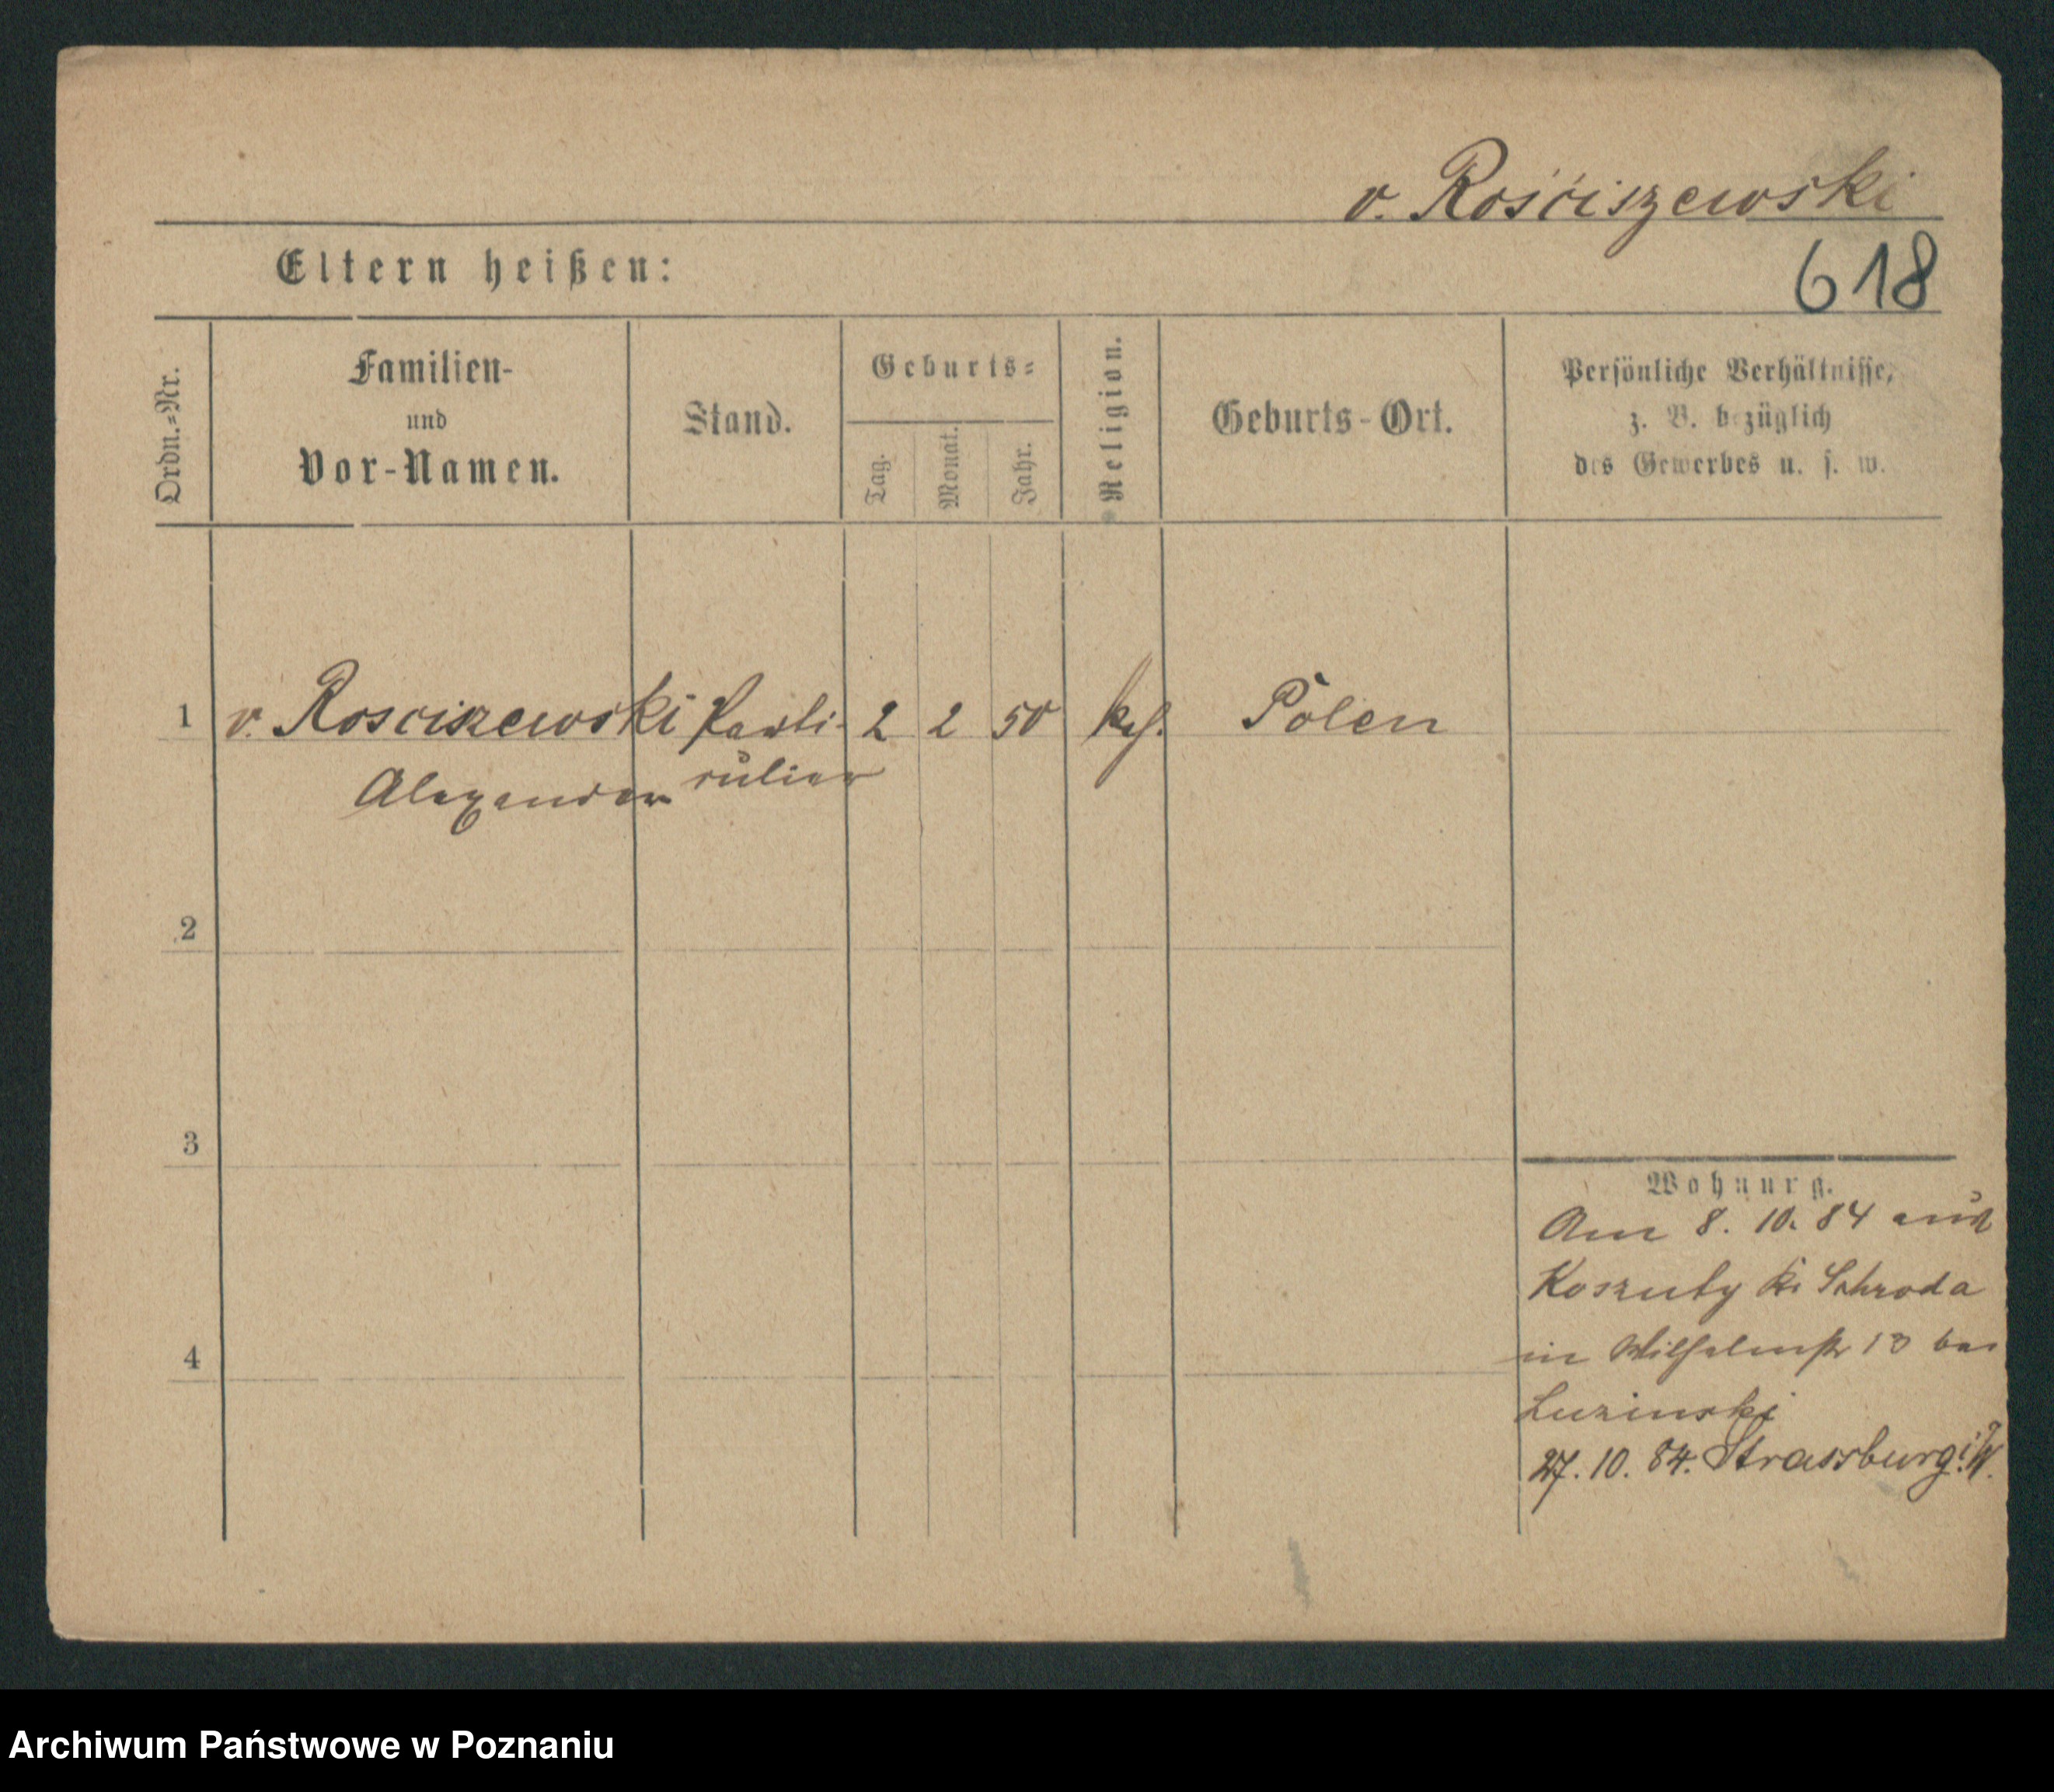 v. Rościszewski
Eltern heißen:
618
Ordn.=Nr.
Familien-
und
Vor-Namen.
Stand.
Geburts=
Tag.
Monat.
Jahr.
Religion.
Geburts-Ort.
Persönliche Verhältnisse,
z. B. bezüglich
des Gewerbes u. s. w.
1 v. Rosciszewski Parti- 2 2 50 kth. Polen
Alexander culier
2
3
4
Wohnung.
Am 8. 10. 84 aus
Koszuty Kr Schroda
in Wilhelmstr 13 bei
Luzinski
27. 10. 84. Strassburg i/W.
Archiwum Państwowe w Poznaniu